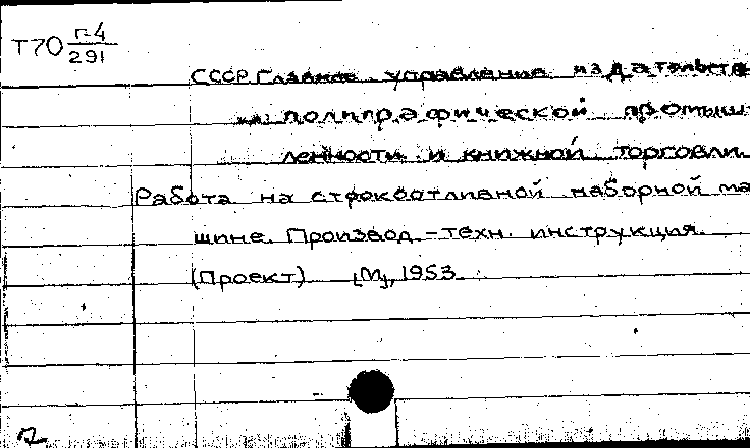 Т70 г-4
291
СССР. Главное управление издательств
полиграфической промыш
ленности и книжной торговли.
Работа на строкоотливной наборной ма
шине. Производ.-техн. инструкция.
(Проект) [М], 1953.